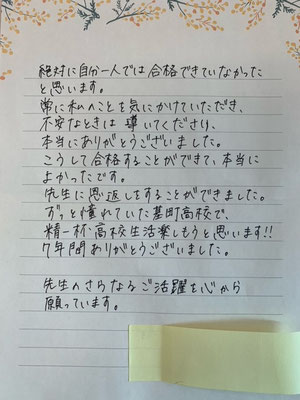 絶対に自分一人では合格できていなかった
と思います。
常に私のことを気にかけていただき、
不安なときは導いてくださり、
本当にありがとうございました。
こうして合格することができて、本当に
よかったです。
先生に恩返しをすることができました。
ずっと憧れていた基町高校で、
精一杯高校生活楽しもうと思います!!
7年間ありがとうございました。
先生のさらなるご活躍を心から
願っています。